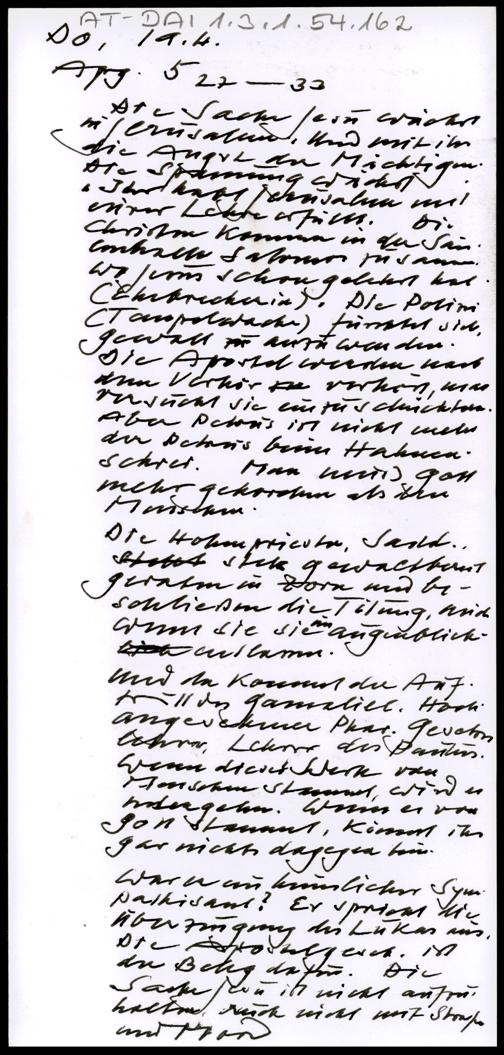 AT-DAI 1.3.1.54.162
Do, 19.4.
Apg. 5 22 — 33
Die Sache Jesu wächst
in Jerusalem. Und mit ihr
die Angst der Mächtigen.
Die Spannung wächst
Ihr habt Jerusalem mit
eurer Lehre erfüllt. Die
Christen kommen in der Säu
lenhalle Salomos zusamm
wo Jesus schon gelehrt hat
(Ehebrecherin). Die Polizei
(Tempelwache) fürchtet sich,
Gewalt anzuwenden.
Die Apostel werden nach
dem Verhör verhört, man
versucht sie einzuschüchtern.
Aber Petrus ist nicht mehr
der Petrus beim Hahnen
schrei. Man muß Gott
mehr gehorchen als den
Menschen.
Die Hohenpriester, Sadd..
geraten in Zorn und be-
schließen die Tötung, auch
wenn sie sie im Augenblick
entlassen.
Und da kommt der Auf-
tritt des Gamaliel. Hoch
angesehener Phar. Gesetzes
lehrer, Lehrer des Paulus.
Wenn dieses Werk von
Menschen stammt, wird es
untergehen. Wenn es von
Gott stammt, könnt ihr
gar nichts dagegen tun.
War er ein heimlicher Sym-
pathisant? Er spricht die
Überzeugung des Lukas aus.
Die Apostelgesch. ist
der Beleg dafür. Die
Sache Jesu ist nicht aufzu
halten, auch nicht mit
und Mord